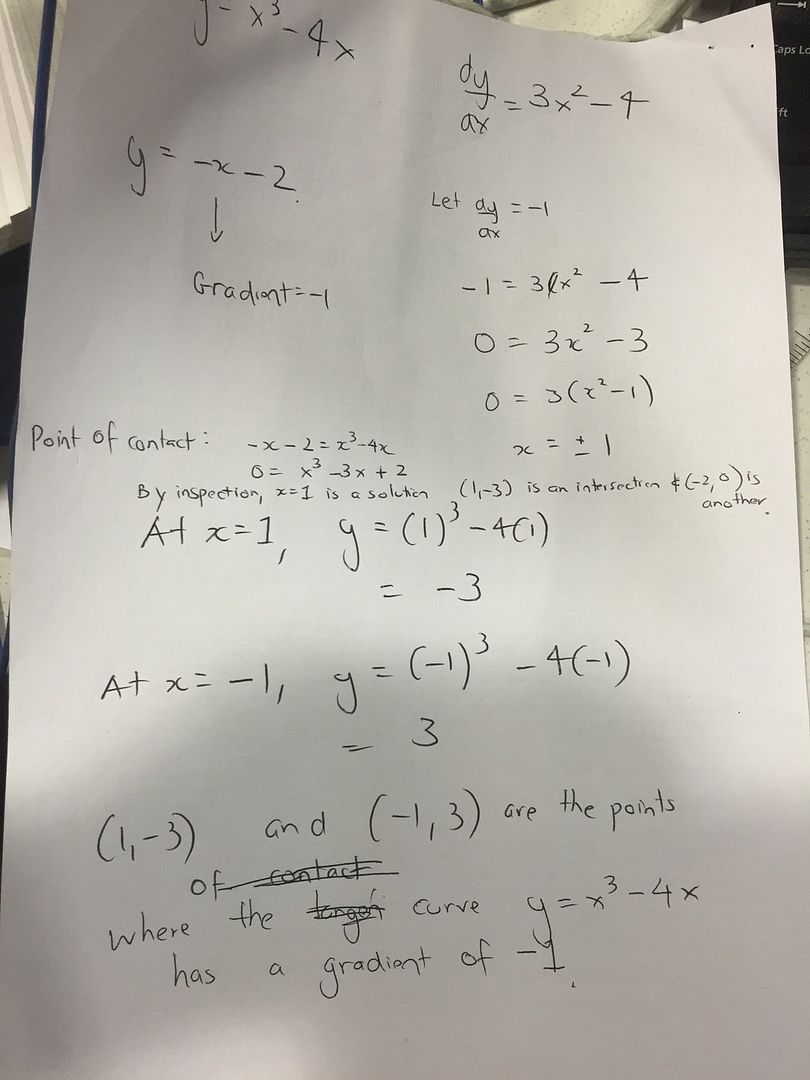 y = x³ - 4x
dy/dx = 3x² - 4
y = -x - 2
↓
Gradient = -1
Let dy/dx = -1
-1 = 3x² - 4
0 = 3x² - 3
0 = 3(x² - 1)
x = ± 1
Point of contact: -x - 2 = x³ - 4x
0 = x³ - 3x + 2
By inspection, x=1 is a solution (1,-3) is an intersection & (-2,0) is
another.
At x=1, y = (1)³ - 4(1)
= -3
At x = -1, y = (-1)³ - 4(-1)
= 3
(1,-3) and (-1,3) are the points
of contact
where the curve y = x³ - 4x
has a gradient of -1.
Caps Lo
ft